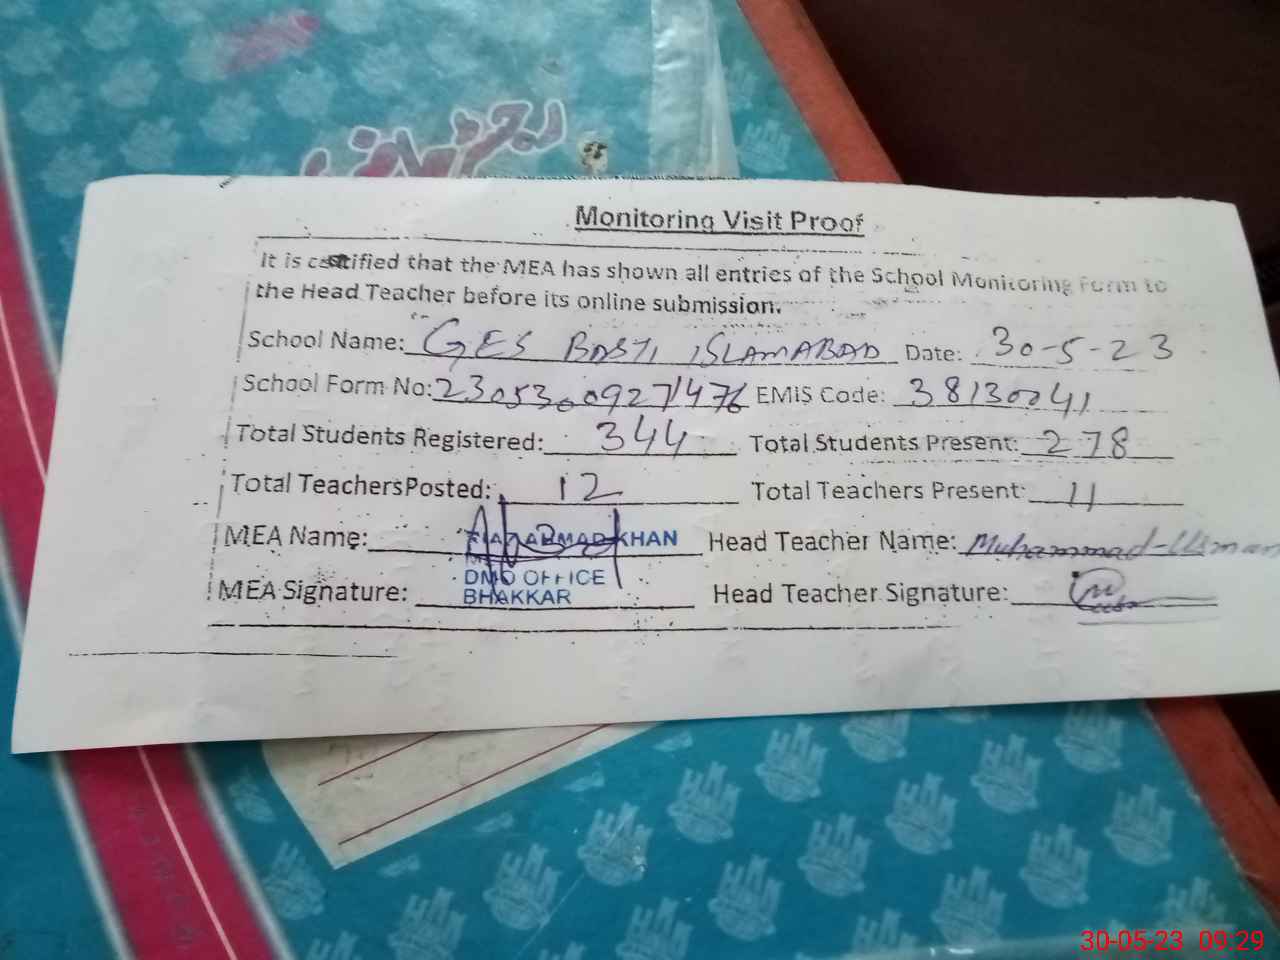 Monitoring Visit Proof
It is certified that the MEA has shown all entries of the School Monitoring Form to
the Head Teacher before its online submission.
School Name: GES BASTI ISLAMABAD Date: 30-5-23
School Form No: 23053009271476 EMIS Code: 38130041
Total Students Registered: 344 Total Students Present: 278
Total Teachers Posted: 12 Total Teachers Present: 11
MEA Name: KHAN Head Teacher Name: Muhammad Usman
DMO OFFICE
MEA Signature: BHAKKAR Head Teacher Signature:
30-05-23 09:29